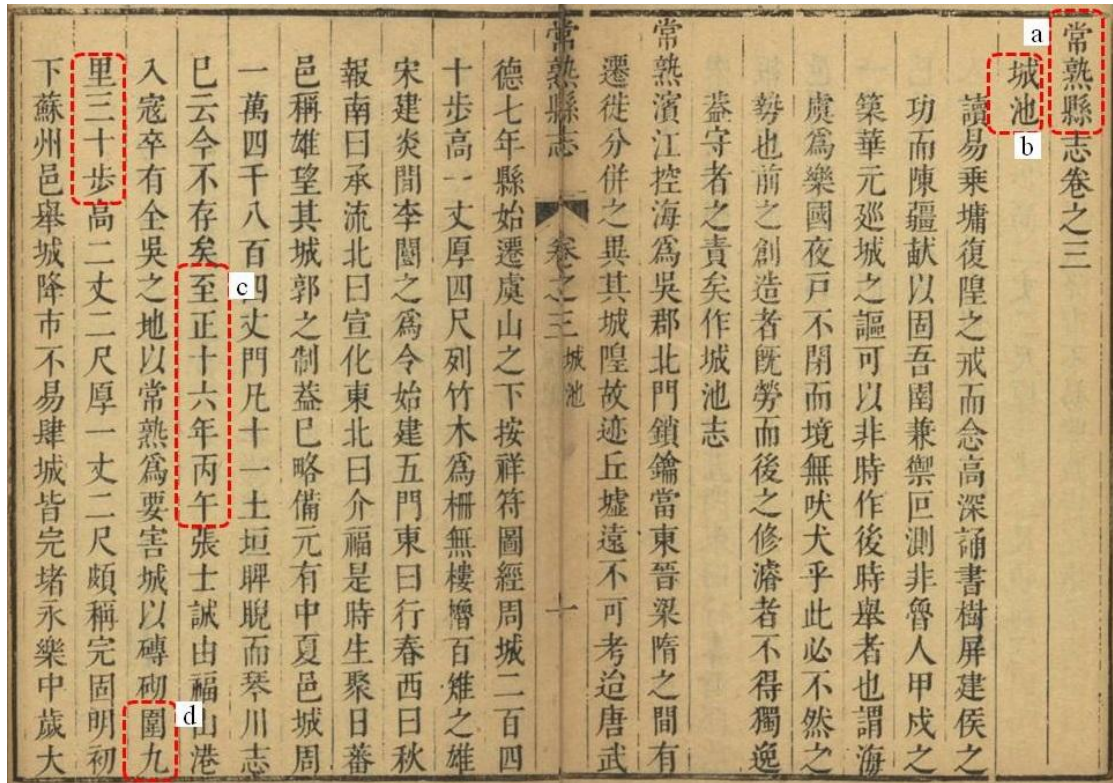 常熟縣志卷之三
城池
讀易乗墉復隍之戒而念高深誦書樹屏建侯之
功而陳疆猷以固吾圉兼禦叵測非魯人甲戍之
築華元廵城之謳可以非時作後時舉者也謂海
虞爲樂國夜戸不閉而境無吠犬乎此必不然之
勢也前之創造者旣勞而後之修濬者不得獨逸
葢守者之責矣作城池志
常熟濱江控海爲吳郡北門鎖鑰當東晉梁隋之間有
遷徙分併之異其城隍故迹丘墟遠不可考迨唐武
常熟縣志 卷之三 城池 十
德七年縣始遷虞山之下按祥符圖經周城二百四
十步高一丈厚四尺列竹木爲柵無樓櫓百雉之雄
宋建炎間李闓之爲令始建五門東曰行春西曰秋
報南曰承流北曰宣化東北曰介福是時生聚日蕃
邑稱雄望其城郭之制葢巳略備元有中夏邑城周
一萬四千八百四丈門凡十一土垣睥睨而琴川志
巳云今不存矣至正十六年丙午張士誠由福山港
入寇卒有全吳之地以常熟爲要害城以磚砌圍九
里三十步高二丈二尺厚一丈二尺頗稱完固明初
下蘇州邑舉城降市不易肆城皆完堵永樂中歲大
a
b
c
d